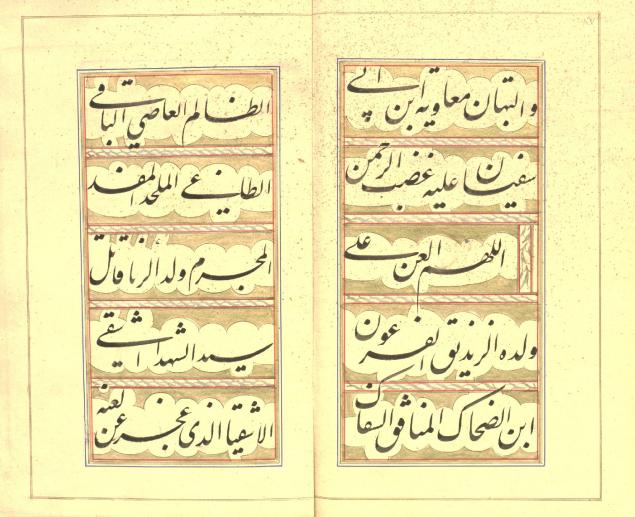 والبهتان معاوية ابن ابي
سفيان عليه غضب الرحمن
اللهم العن على
ولده الزنديق الفرعون
ابن الضحاك المنافق السفاك
الظالم العاصي الباقي
الطاغي الملحد المفسد
المجرم ولد الزنا قاتل
سيد الشهدا اشقى
الاشقيا الذى عجز عن لعنه